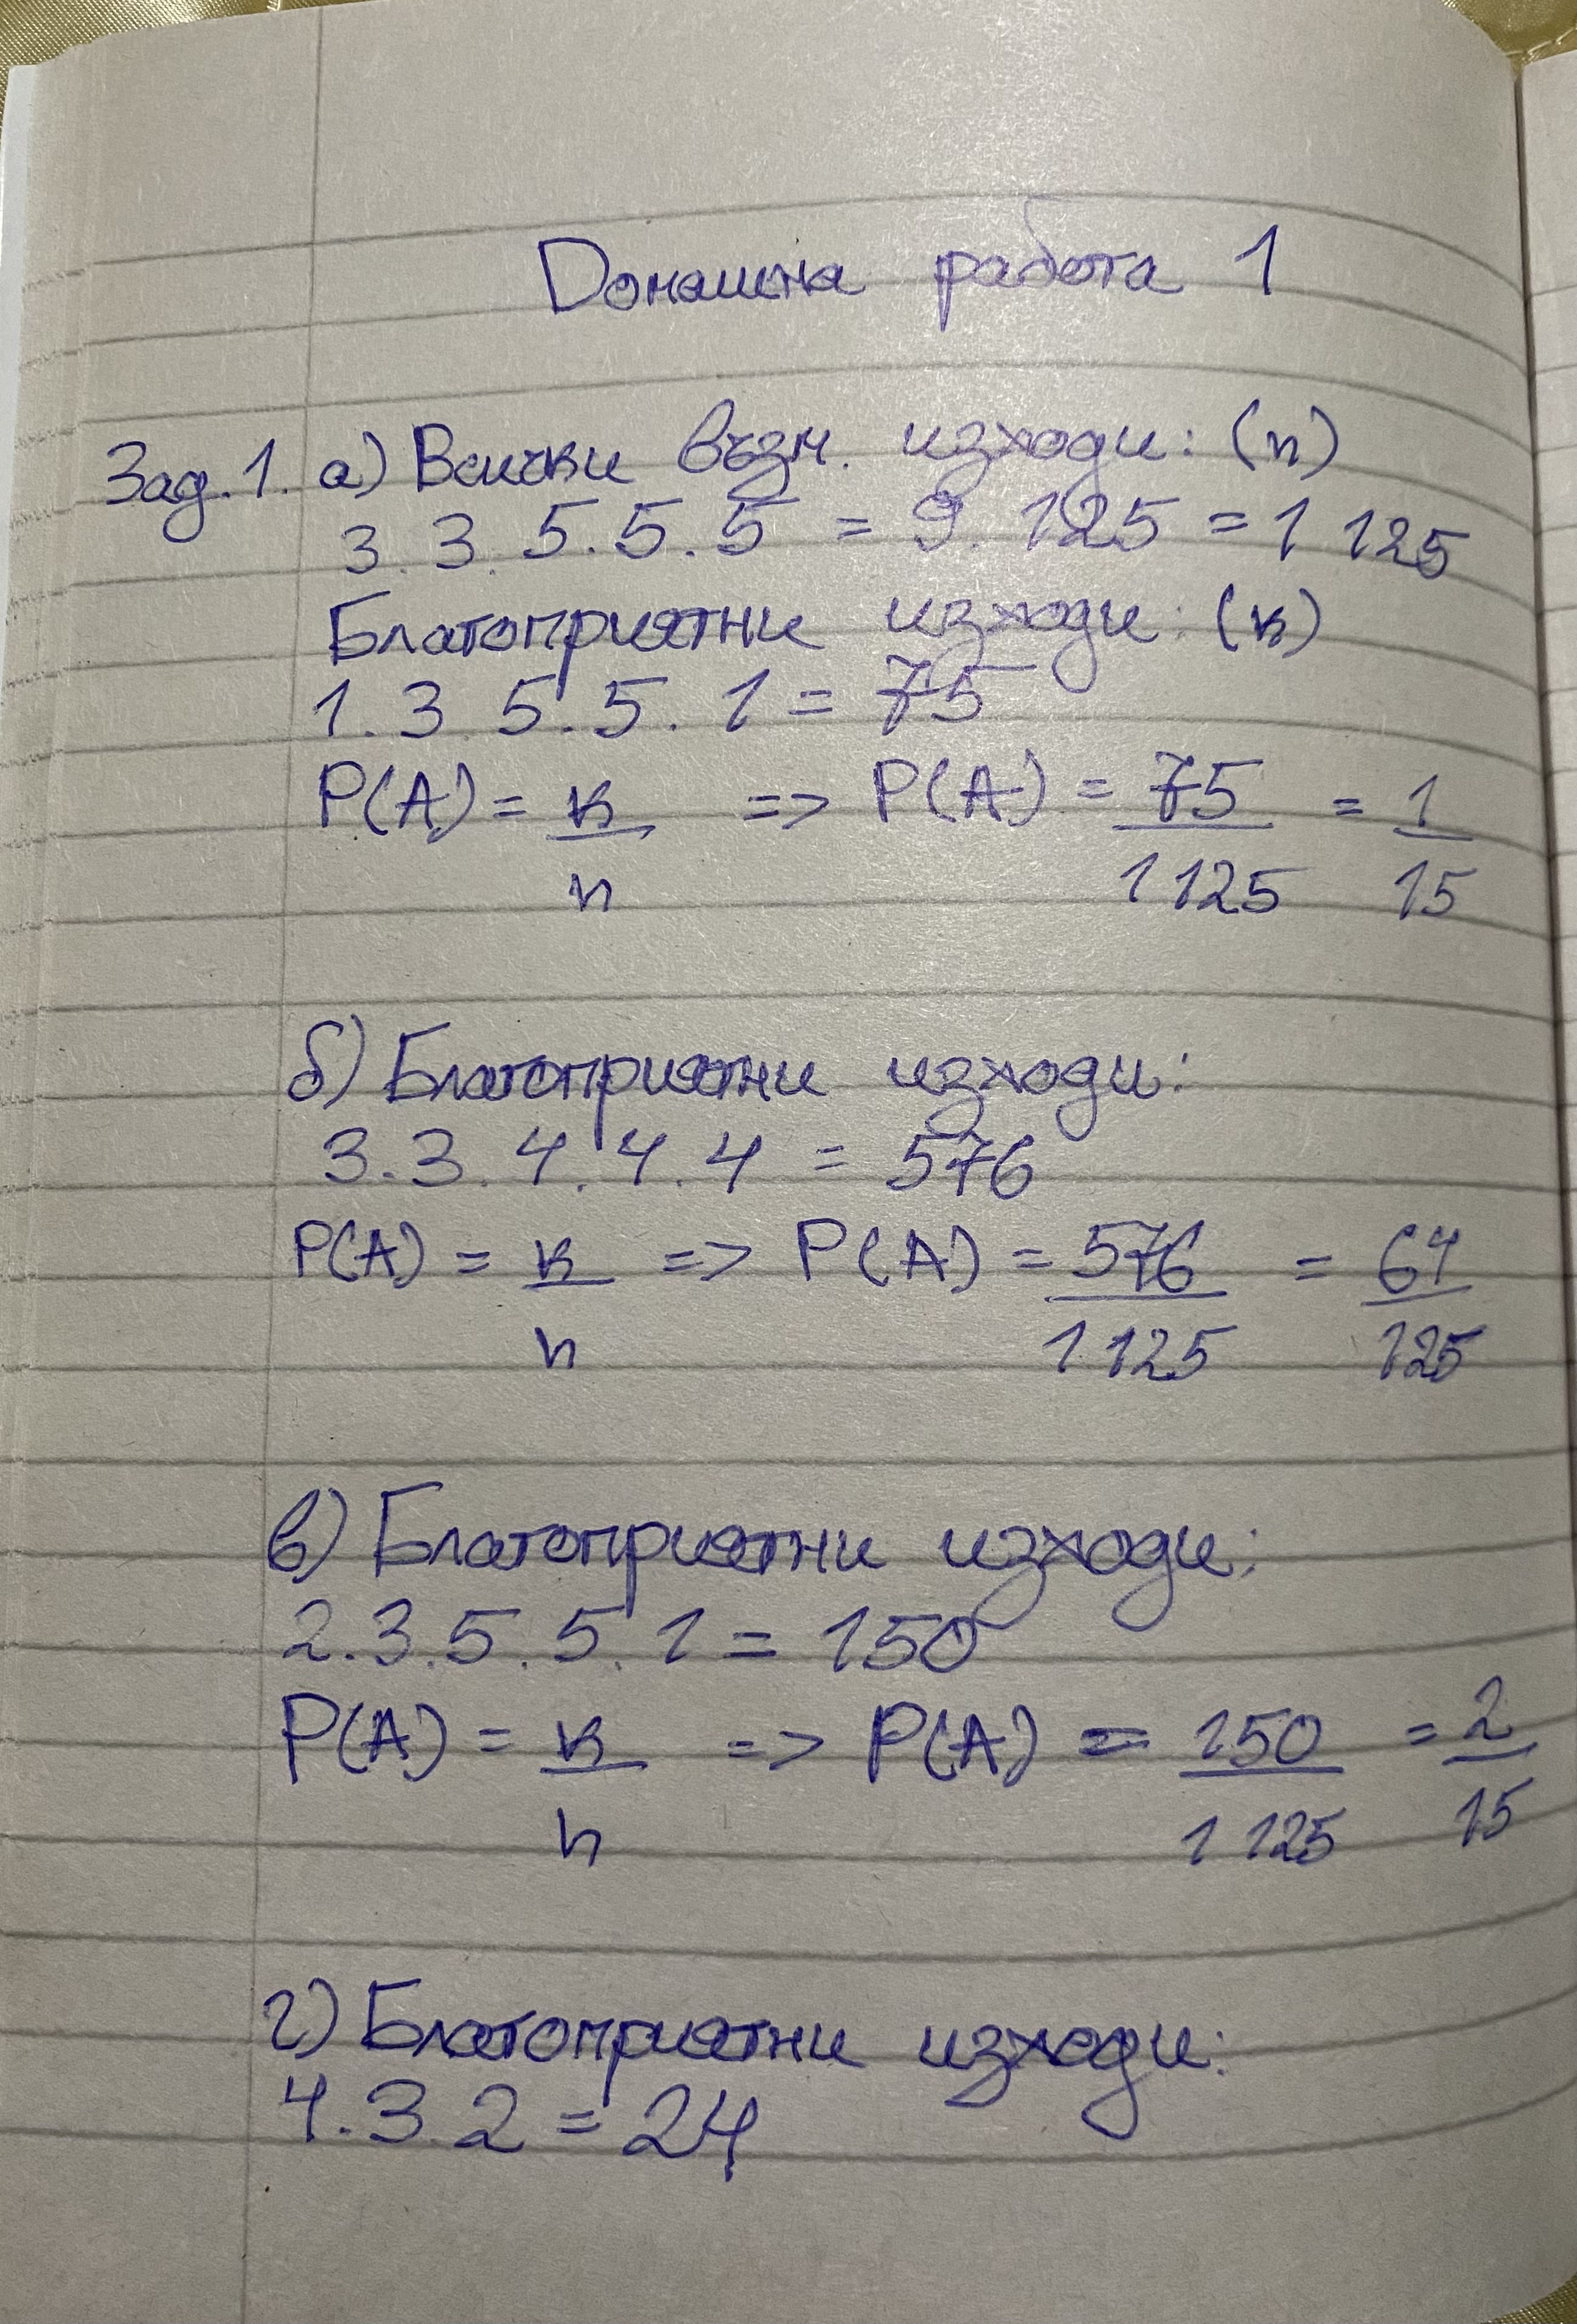 Домашна работа 1
Зад. 1. а) Всички възм. изходи: (n)
3.3.5.5.5 = 9.125 = 1 125
Благоприятни изходи: (к)
1.3.5.5.1 = 75
P(A) = к/n => P(A) = 75/1 125 = 1/15
б) Благоприятни изходи:
3.3.4.4.4 = 576
P(A) = к/n => P(A) = 576/1 125 = 64/125
в) Благоприятни изходи:
2.3.5.5.1 = 150
P(A) = к/n => P(A) = 150/1 125 = 2/15
г) Благоприятни изходи:
4.3.2 = 24